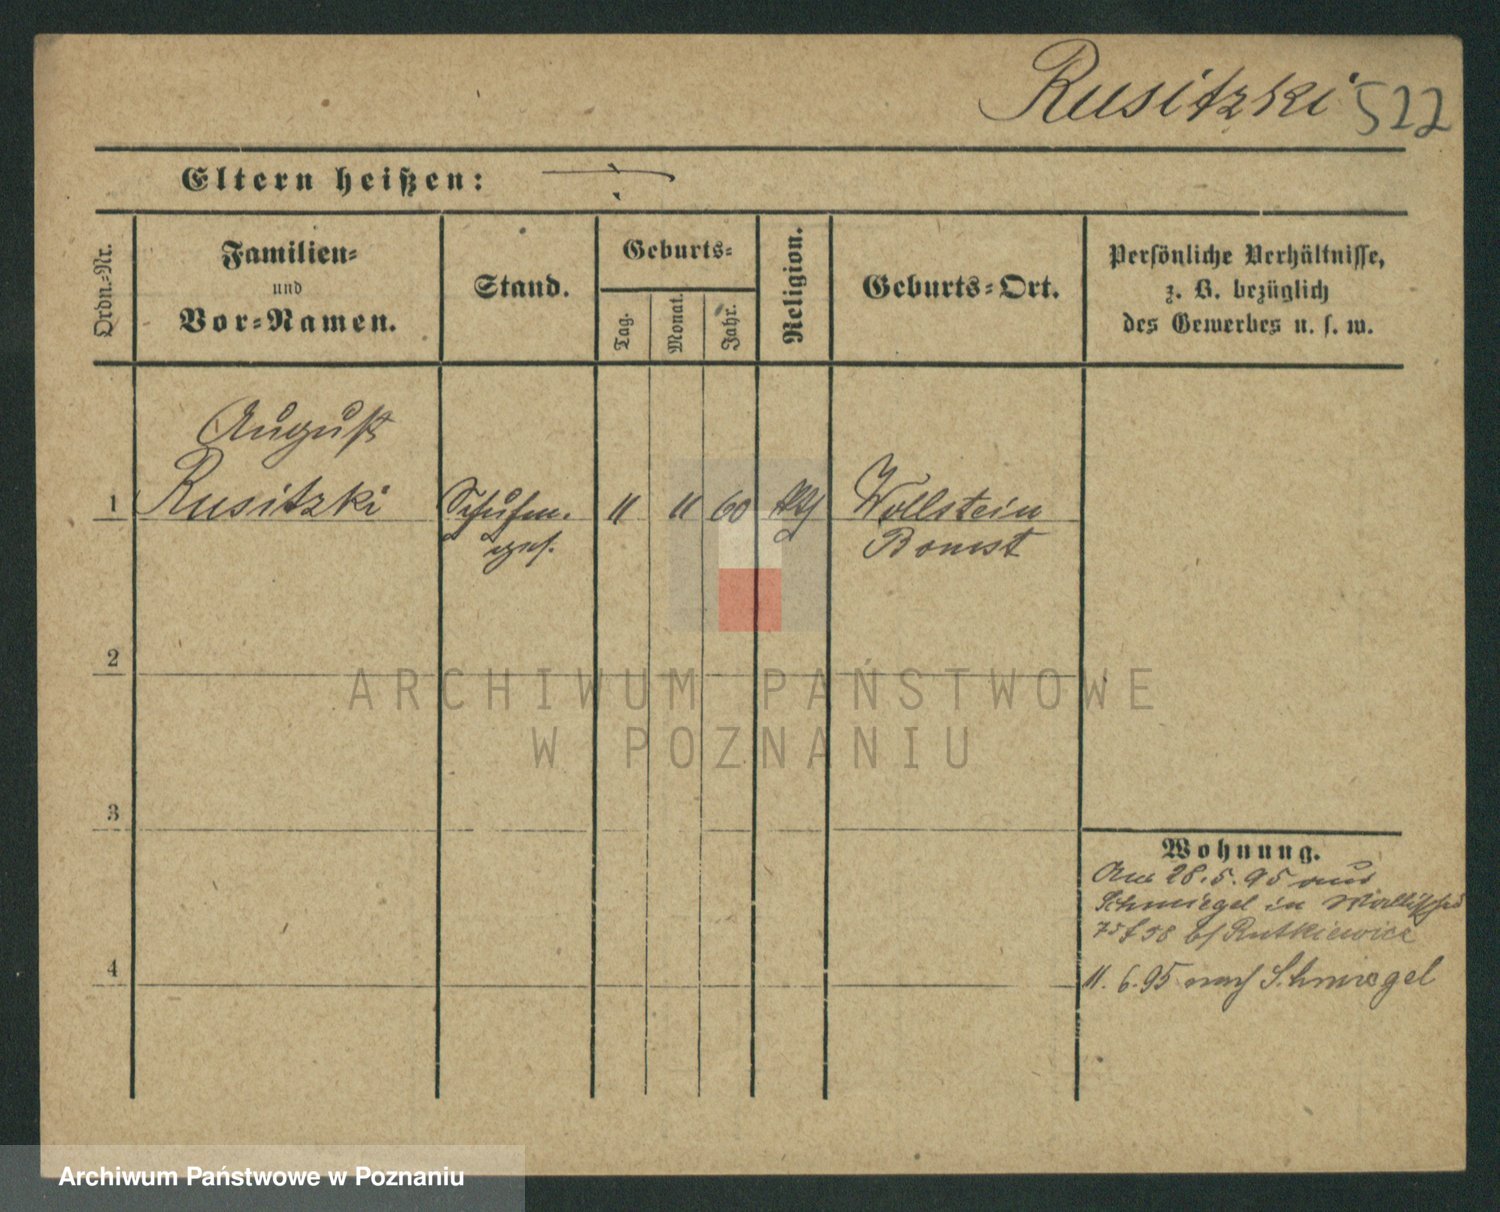 Rusitzki 522
Eltern heißen:
Ordn.-Nr.
Familien-
und
Vor-Namen.
Stand.
Geburts-
Tag.
Monat.
Jahr.
Religion.
Geburts-Ort.
Persönliche Verhältnisse,
z. B. bezüglich
des Gewerbes u. s. w.
August
1 Rusitzki 11 11 60 Wollstein
Bomst
2
ARCHIWUM PAŃSTWOWE
W POZNANIU
3
Wohnung.
28.5.95 aus
Schmiegel in
58 b/ Rutkiewicz
4
11.6.95 nach Schmiegel
Archiwum Państwowe w Poznaniu